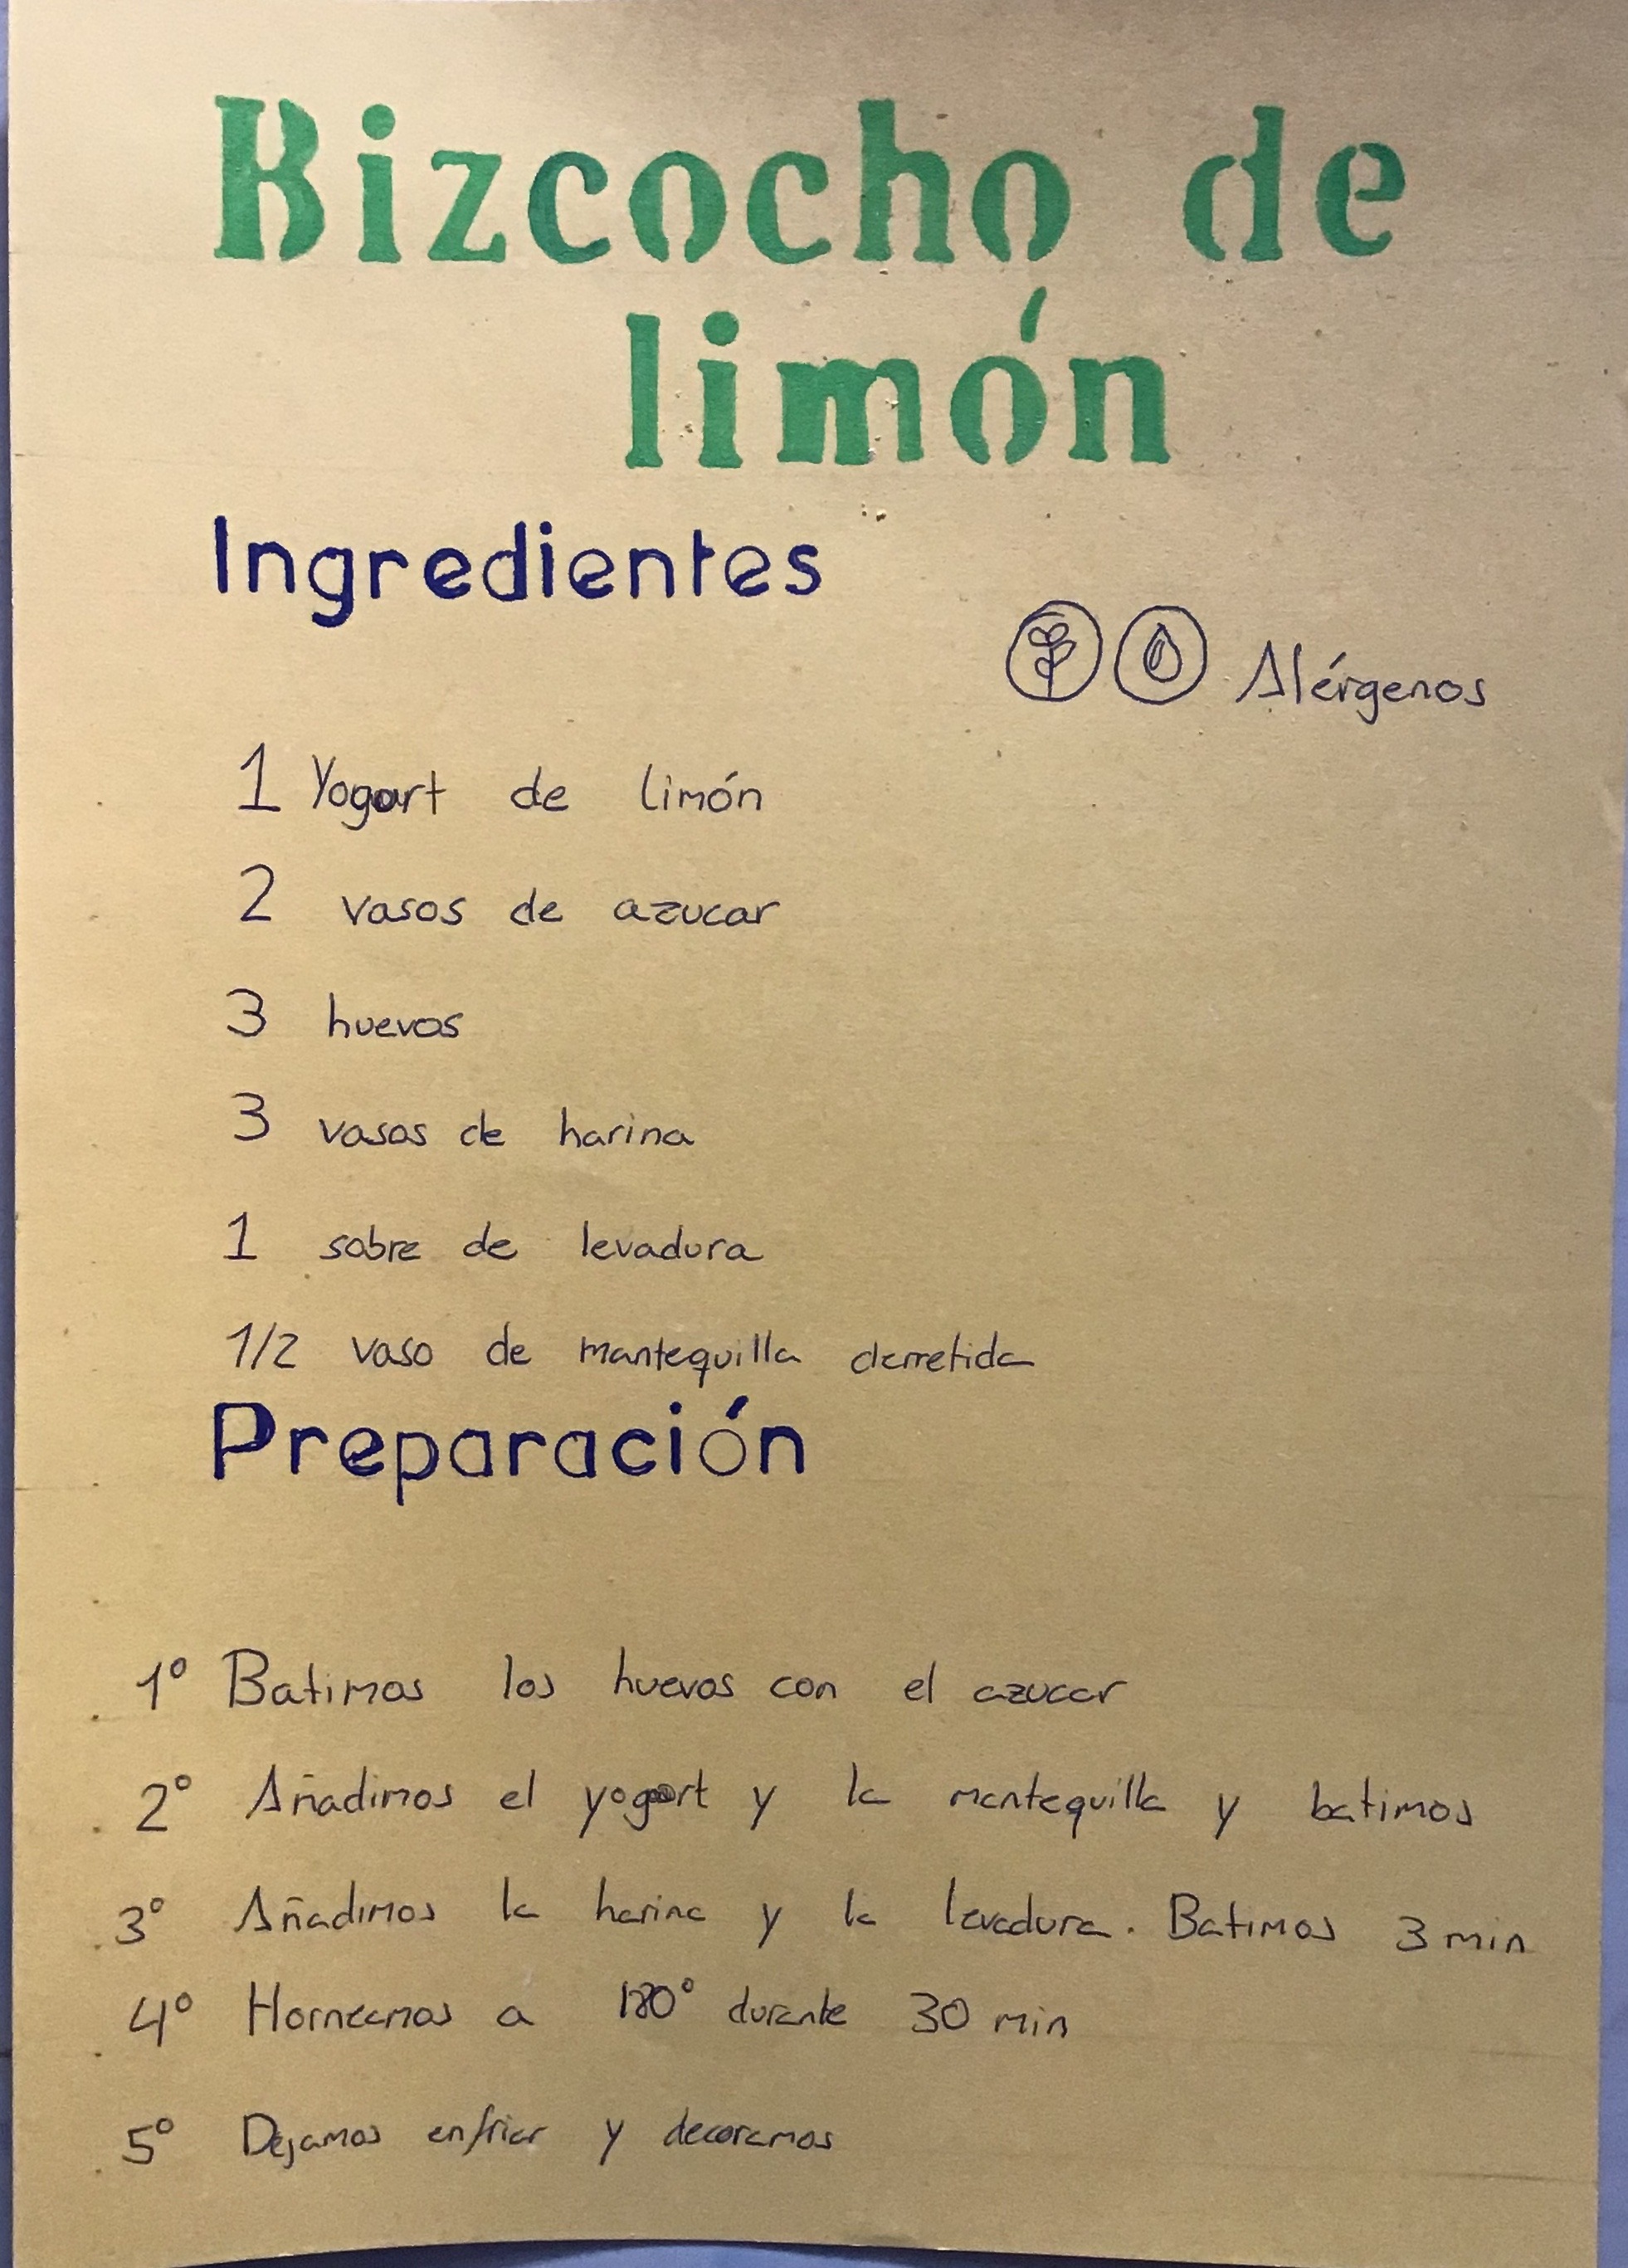 Bizcocho de
limón
Ingredientes
Alérgenos
1 Yogurt de limón
2 vasos de azucar
3 huevos
3 vasos de harina
1 sobre de levadura
1/2 vaso de mantequilla derretida
Preparación
1º Batimos los huevos con el azucar
2º Añadimos el yogurt y la mantequilla y batimos
3º Añadimos la harina y la levadura. Batimos 3 min
4º Horneamos a 180º durante 30 min
5º Dejamos enfriar y decoramos